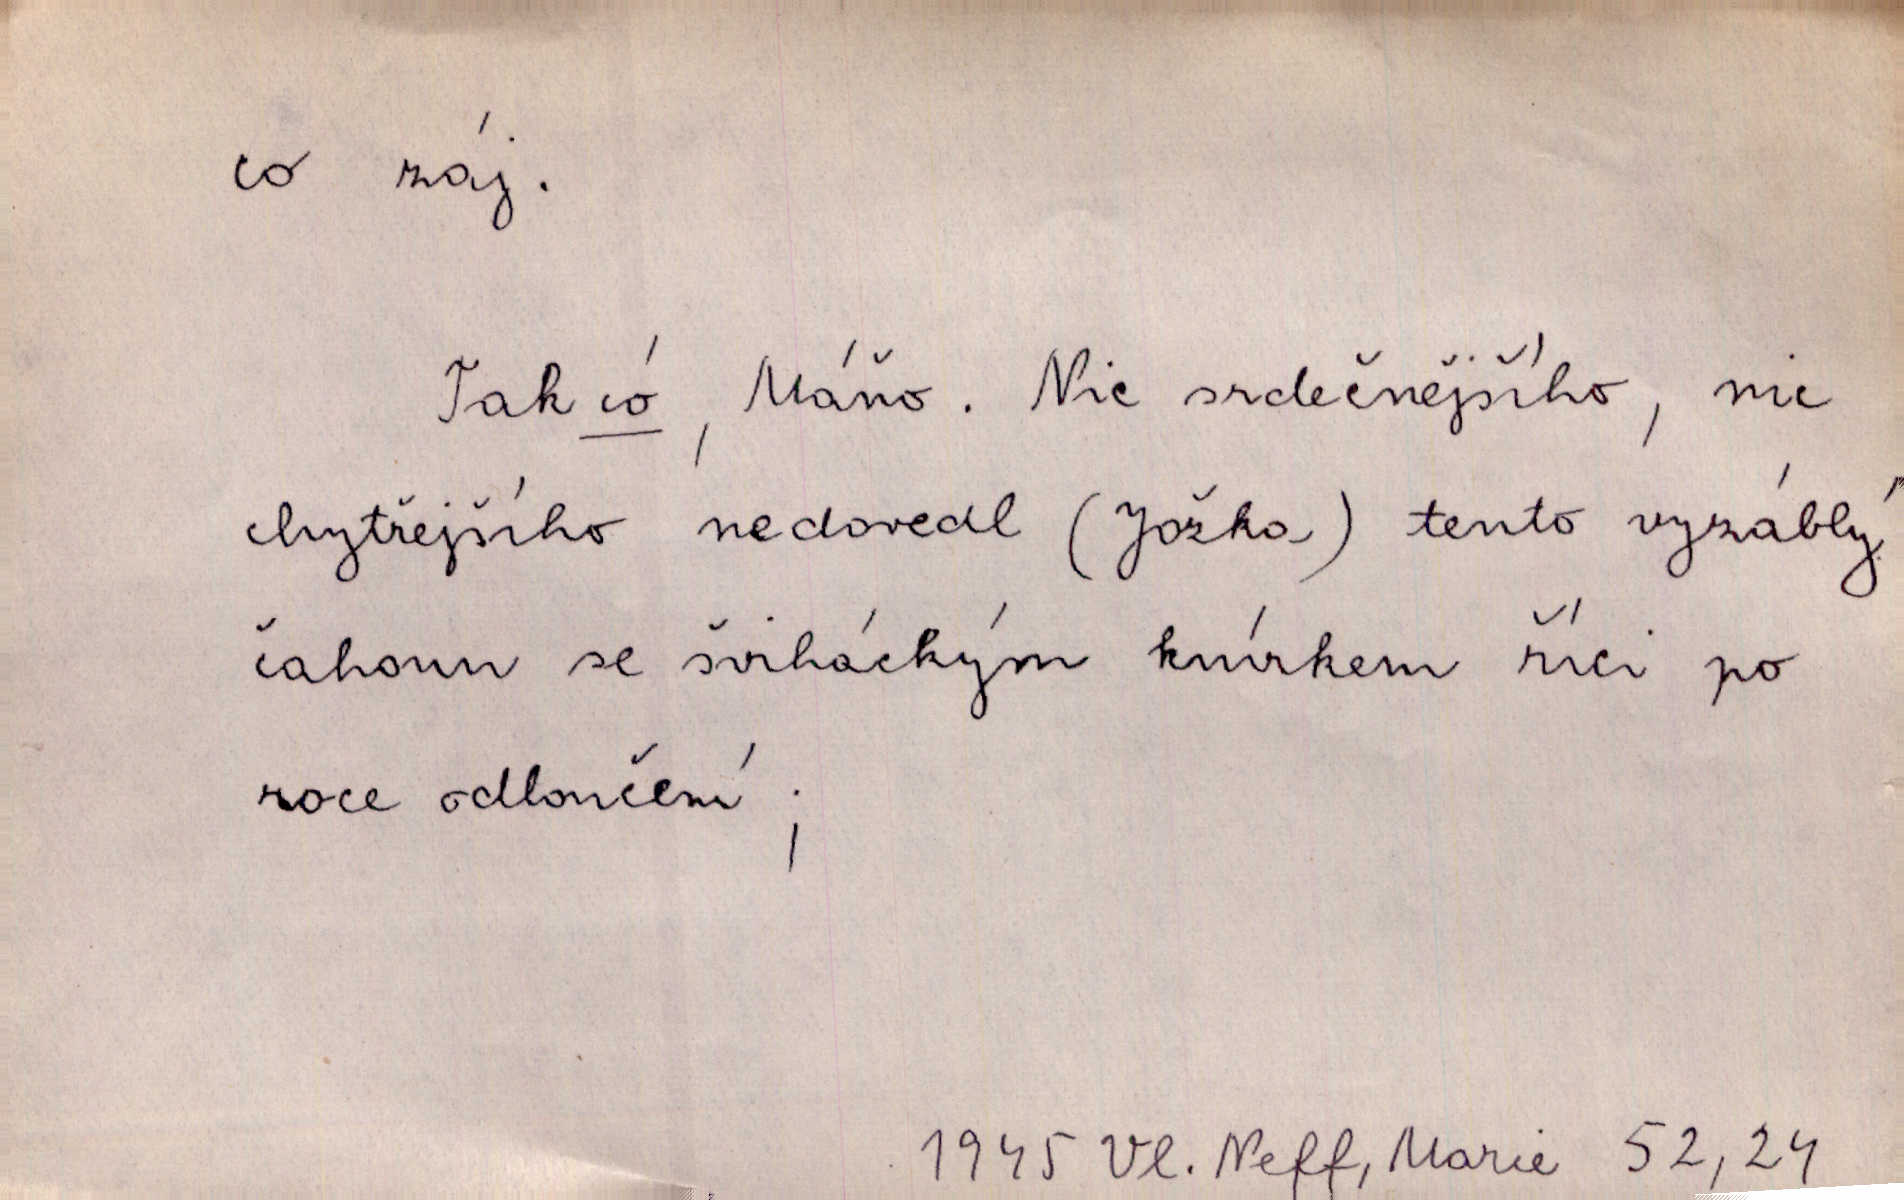 co záj.
Tak có, Máňo. Nic srdečnějšího, nic
chytřejšího nedovedl (Jožka) tento vyzáblý
čahoun se šviháckým knírkem říci po
roce odloučení;
1945 Vl. Neff, Marie 52,24